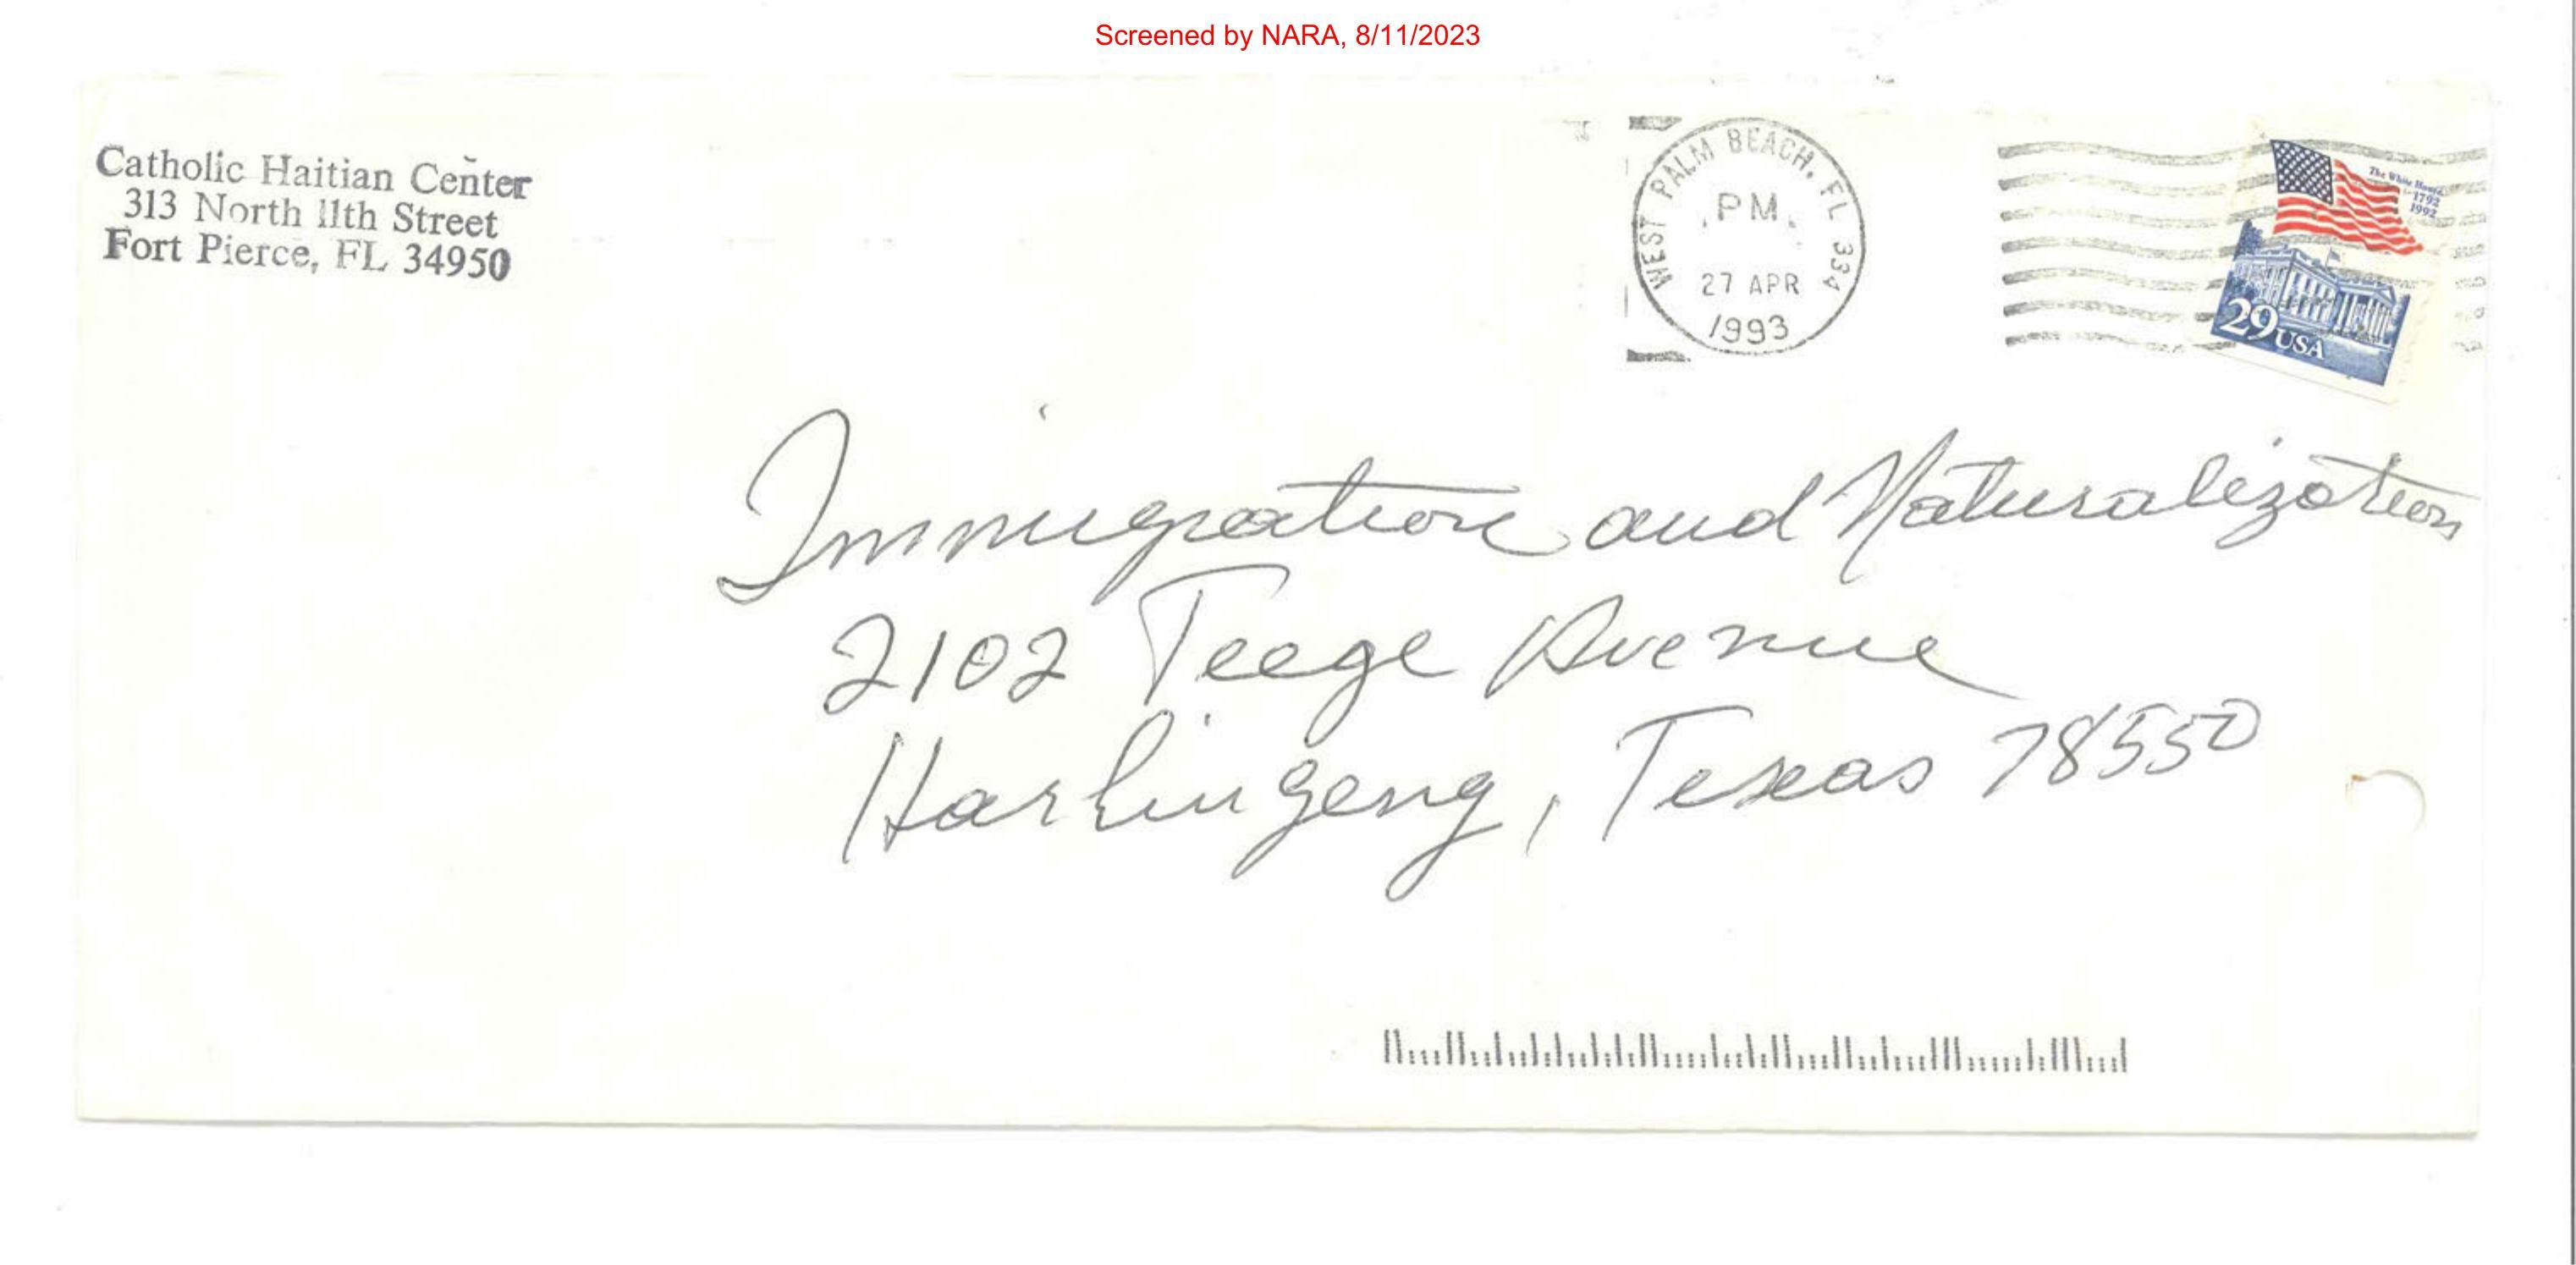 Screened by NARA, 8/11/2023
Catholic Haitian Center
313 North 11th Street
Fort Pierce, FL 34950
WEST PALM BEACH, FL 334
PM
27 APR
1993
The White House
1792
1992
29 USA
Immigration and Naturalization
2102 Teege Avenue
Harlingeng, Texas 78550